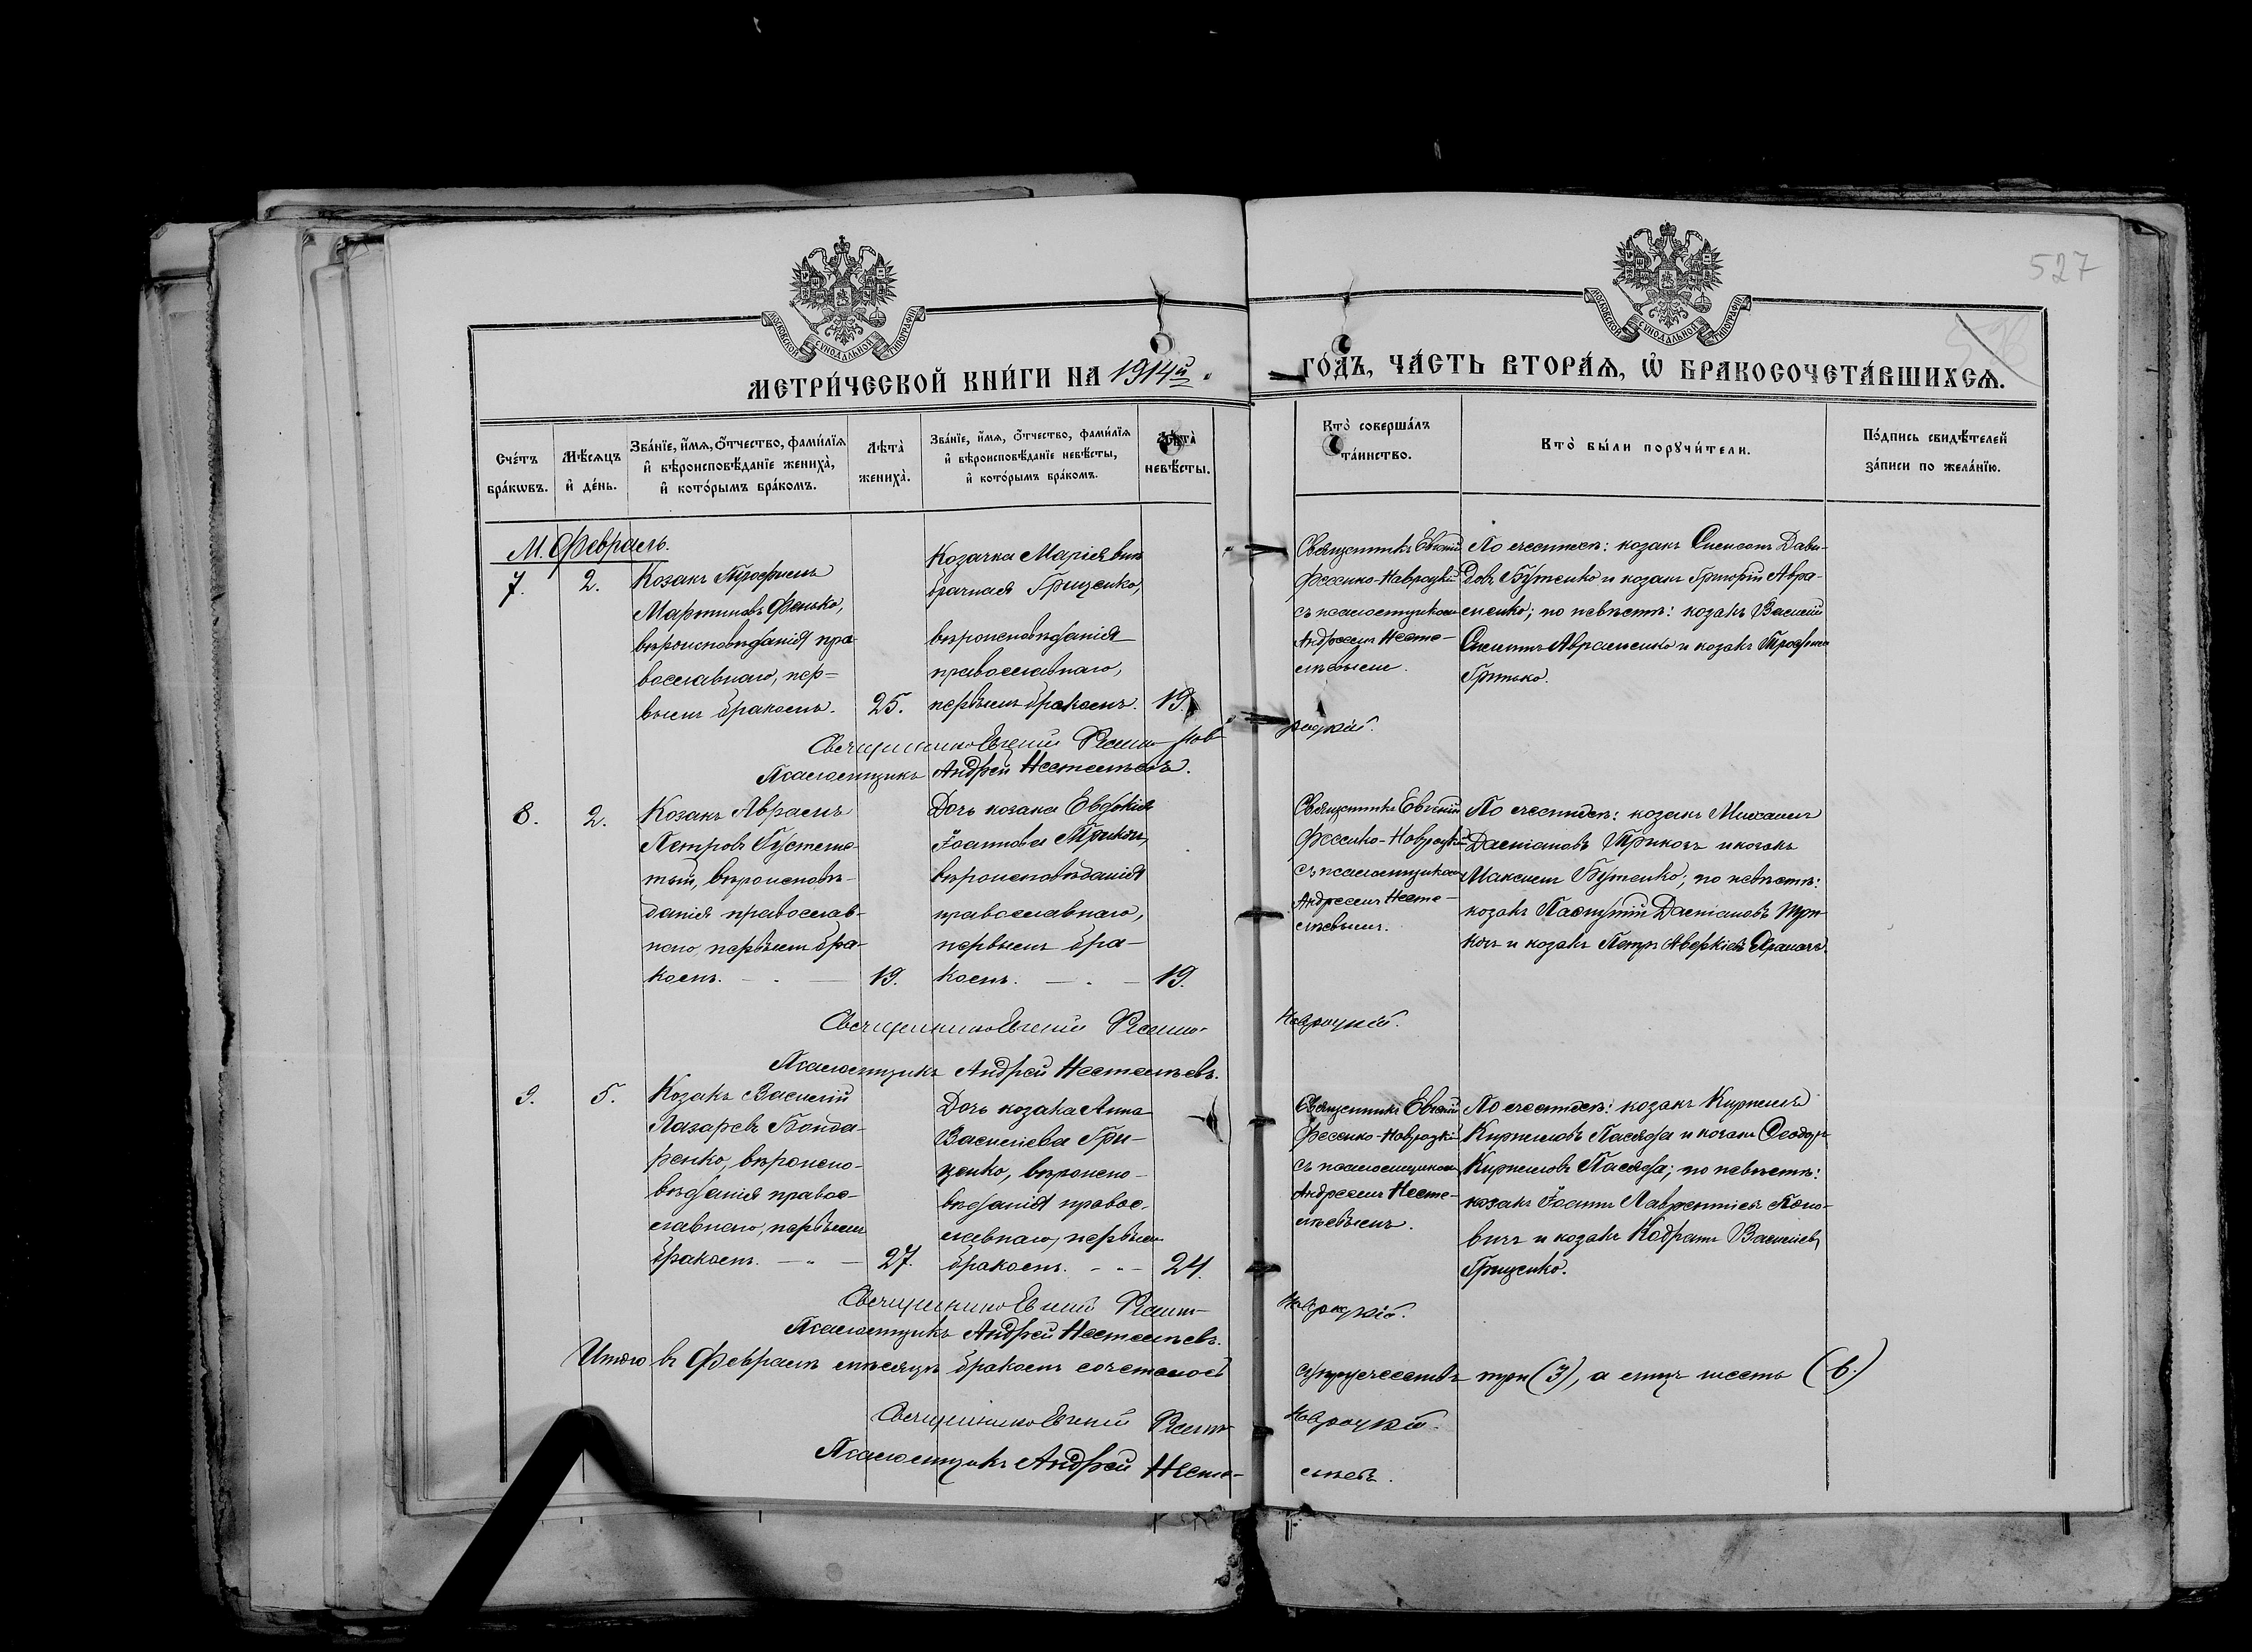 527
МОСКОВСКОЙ СѴНОДАЛЬНОЙ ТИПОГРАФІИ
МОСКОВСКОЙ СѴНОДАЛЬНОЙ ТИПОГРАФІИ
МЕТРИ́ЧЕСКОЙ КНИ́ГИ НА 1914й
ГО́ДЪ, ЧА́СТЬ ВТОРА́Я, Ѡ҆ БРАКОСОЧЕТА́ВШИХСЯ.
Сче́тъ
бра́кѡвъ.
Мѣ́сяцъ
и҆ де́нь.
Зва́нїе, и҆́мя, ѻ҆́тчество, фами́лїя
и҆ вѣроисповѣ́данїе жениха̀,
и҆ кото́рымъ бра́комъ.
Лѣ́та̀
жениха̀.
Зва́нїе, и҆́мя, ѻ҆́тчество, фами́лїя
и҆ вѣроисповѣ́данїе невѣ́сты,
и҆ кото́рымъ бра́комъ.
Лѣ́та̀
невѣ́сты.
Кто̀ соверша́лъ
та́инство.
Кто̀ бы́ли порꙋчи́тели.
По́дпись свидѣ́телей
за́писи по жела́нїю.
М. Февраль.
7.
2.
Козакъ Трофимъ
Мартиновъ Фенько,
вѣроисповѣданія пра-
вославнаго, пер-
вымъ бракомъ.
25.
Козачка Марія внѣ
брачная Грищенко,
вѣроисповѣданія
православнаго,
первымъ бракомъ.
19.
Священникъ Евгеній
Фесенко-Навроцкій
съ псаломщикомъ
Андреемъ Несте-
мѣевымъ.
По женихѣ: козакъ Симеонъ Дави-
довъ Бутенко и козакъ Григорій Авра-
менко; по невѣстѣ: козакъ Василій
Авраменко и козакъ Трофимъ
Гритько.
Священникъ Евгеній Фесенко-Нав-
роцкій.
Псаломщикъ Андрей Нестемѣевъ.
8.
2.
Козакъ Аврамъ
Петровъ Пустем-
тый, вѣроисповѣ-
данія православ-
наго, первымъ бра-
комъ.
19.
Дочь козака Евдокія
Іоаннова Трикозъ,
вѣроисповѣданія
православнаго,
первымъ бра-
комъ.
19.
Священникъ Евгеній
Фесенко-Навроцкій
съ псаломщикомъ
Андреемъ Несте-
мѣевымъ.
По женихѣ: козакъ Михаилъ
Даміановъ Трикозъ и козакъ
Максимъ Бутенко; по невѣстѣ:
козакъ Пафнутій Даміановъ Три-
козъ и козакъ Петръ Аверкіевъ
Священникъ Евгеній Фесенко-
Навроцкій.
Псаломщикъ Андрей Нестемѣевъ.
9.
5.
Козакъ Василій
Лазаревъ Бонда-
ренко, вѣроиспо-
вѣданія правос-
лавнаго, первымъ
бракомъ.
27.
Дочь козака Анна
Василіева Гри-
щенко, вѣроиспо-
вѣданія правос-
лавнаго, первымъ
бракомъ.
24.
Священникъ Евгеній
Фесенко-Навроцкій
съ псаломщикомъ
Андреемъ Несте-
мѣевымъ.
По женихѣ: козакъ Кириллъ
Кирилловъ Пасяда и козакъ Ѳеодоръ
Кирилловъ Пасяда; по невѣстѣ:
козакъ Іоаннъ Лаврентіевъ Попо-
вичъ и козакъ Кодратъ Василіевъ
Грищенко.
Священникъ Евгеній Фесенко-
Навроцкій.
Псаломщикъ Андрей Нестемѣевъ.
Итого въ Февралѣ мѣсяцѣ бракомъ сочеталось
супружествъ три (3), а лицъ шесть (6.)
Священникъ Евгеній Фесенко-
Навроцкій.
Псаломщикъ Андрей Несте-
мѣевъ.